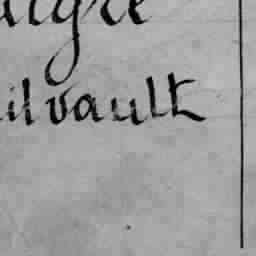 aigre
ilvault